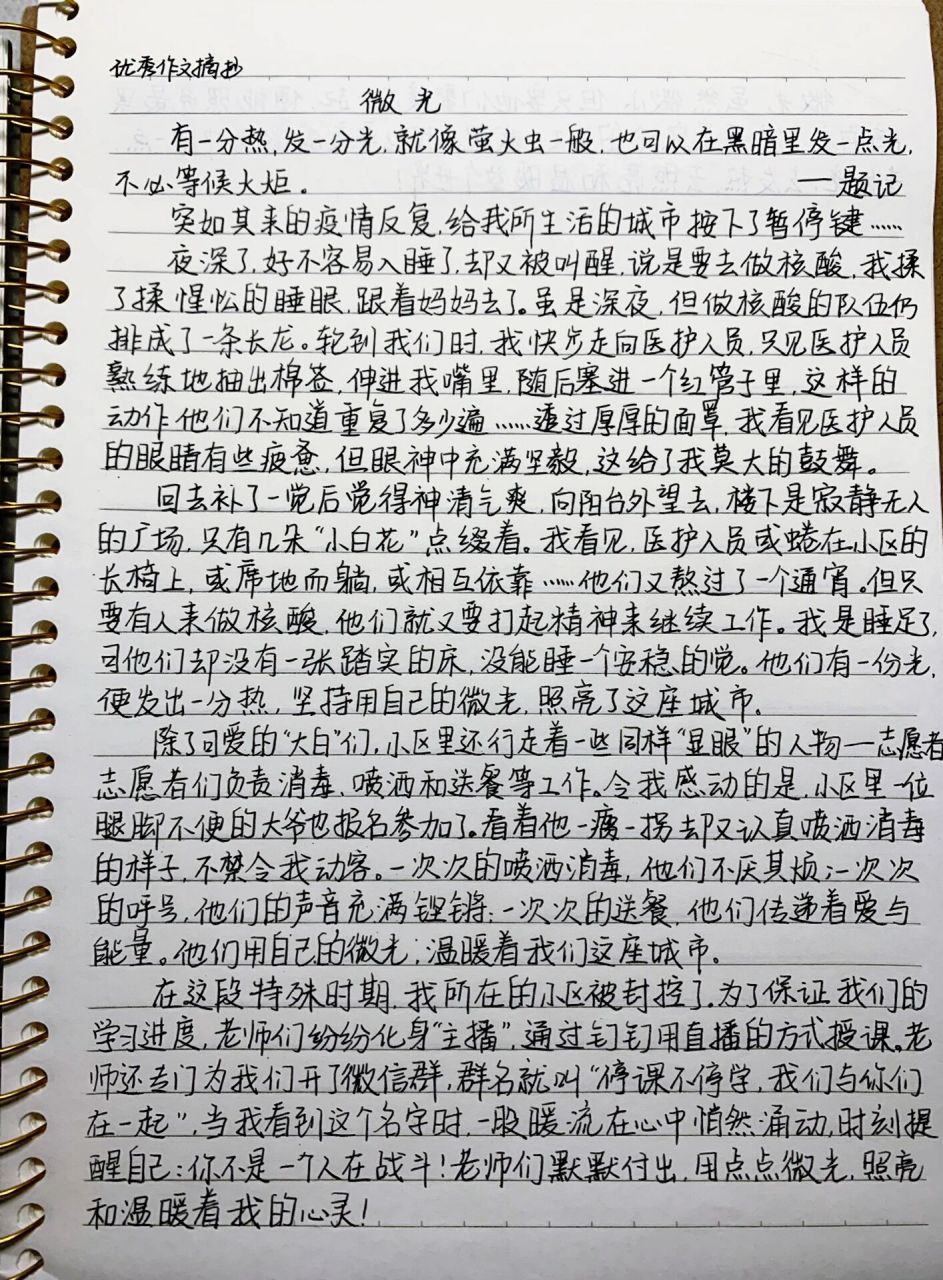 优秀作文摘抄
微光
有一分热,发一分光,就像萤火虫一般,也可以在黑暗里发一点光,
不必等候火炬。 ——题记
突如其来的疫情反复,给我所生活的城市按下了暂停键……
夜深了,好不容易入睡了,却又被叫醒,说是要去做核酸,我揉
了揉惺忪的睡眼,跟着妈妈去了。虽是深夜,但做核酸的队伍仍
排成了一条长龙。轮到我们时,我快步走向医护人员,只见医护人员
熟练地抽出棉签,伸进我嘴里,随后塞进一个红管子里,这样的
动作他们不知道重复了多少遍……透过厚厚的面罩,我看见医护人员
的眼睛有些疲惫,但眼神中充满坚毅,这给了我莫大的鼓舞。
回去补了一觉后觉得神清气爽,向阳台外望去,楼下是寂静无人
的广场,只有几朵“小白花”点缀着。我看见,医护人员或蜷在小区的
长椅上,或席地而躺,或相互依靠……他们又熬过了一个通宵。但只
要有人来做核酸,他们就又要打起精神来继续工作。我是睡足了,
可他们却没有一张踏实的床,没能睡一个安稳的觉。他们有一份光,
便发出一分热,坚持用自己的微光,照亮了这座城市。
除了可爱的“大白”们,小区里还行走着一些同样“显眼”的人物—志愿者
志愿者们负责消毒、喷洒和送餐等工作。令我感动的是,小区里一位
腿脚不便的大爷也报名参加了。看着他一瘸一拐却又认真喷洒消毒
的样子,不禁令我动容。一次次的喷洒消毒,他们不厌其烦;一次次
的呼号,他们的声音充满铿锵;一次次的送餐,他们传递着爱与
能量。他们用自己的微光,温暖着我们这座城市。
在这段特殊时期,我所在的小区被封控了。为了保证我们的
学习进度,老师们纷纷化身“主播”,通过钉钉用直播的方式授课。老
师还专门为我们开了微信群,群名就叫“停课不停学,我们与你们
在一起”,当我看到这个名字时,一股暖流在心中悄然涌动,时刻提
醒自己:你不是一个人在战斗!老师们默默付出,用点点微光,照亮
和温暖着我的心灵!